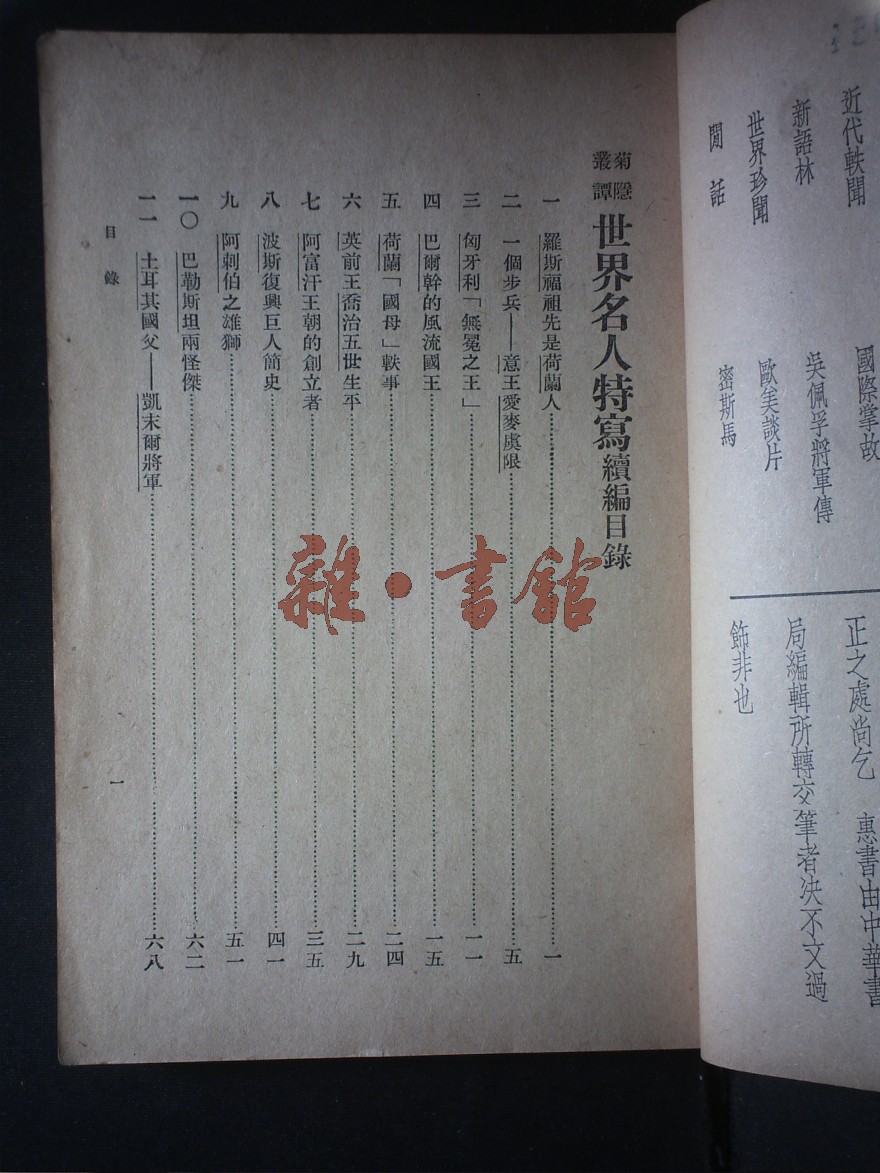 近代軼聞
新語林
世界珍聞
閒話
國際掌故
吳佩孚將軍傳
歐美談片
密斯馬
正之處尚乞 惠書由中華書
局編輯所轉交筆者決不文過
飾非也
菊隱叢譚 世界名人特寫續編目錄
一 羅斯福祖先是荷蘭人 一
二 一個步兵——意王愛麥虞限 五
三 匈牙利「無冕之王」 一一
四 巴爾幹的風流國王 一五
五 荷蘭「國母」軼事 二四
六 英前王喬治五世生平 二九
七 阿富汗王朝的創立者 三五
八 波斯復興巨人簡史 四一
九 阿剌伯之雄獅 五一
一〇 巴勒斯坦兩怪傑 六二
一一 土耳其國父——凱末爾將軍 六八
目錄
一
雜·書館